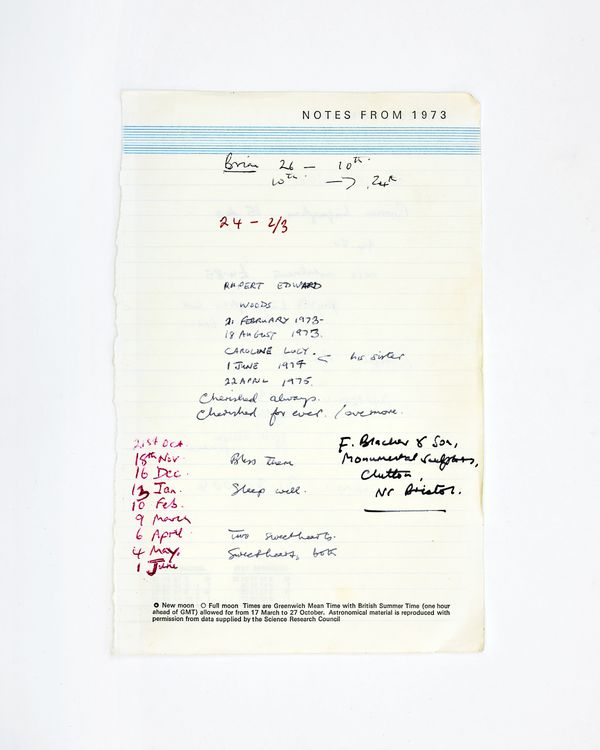 NOTES FROM 1973
Brian 26 — 10th
10th → 24th
24 - 2/3
RUPERT EDWARD
WOODS
21 FEBRUARY 1973-
18 AUGUST 1973.
CAROLINE LUCY. his sister
1 JUNE 1974
22 APRIL 1975.
Cherished always.
Cherished for ever. / evermore.
21st Oct.
18th Nov.
16 Dec.
13 Jan.
10 Feb.
9 March
6 April
4 May,
1 June
Bless them
Sleep well.
Two sweethearts.
Sweethearts, both
F. Blacker & Son,
Monumental Sculptors,
Clutton,
Nr Bristol.
New moon Full moon Times are Greenwich Mean Time with British Summer Time (one hour
ahead of GMT) allowed for from 17 March to 27 October. Astronomical material is reproduced with
permission from data supplied by the Science Research Council